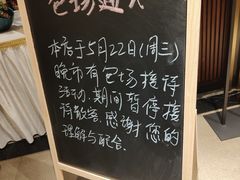 包场通知
本店于5月22日(周三)
晚市有包场接待
活动,期间暂停接
待散客,感谢您的
理解与配合。